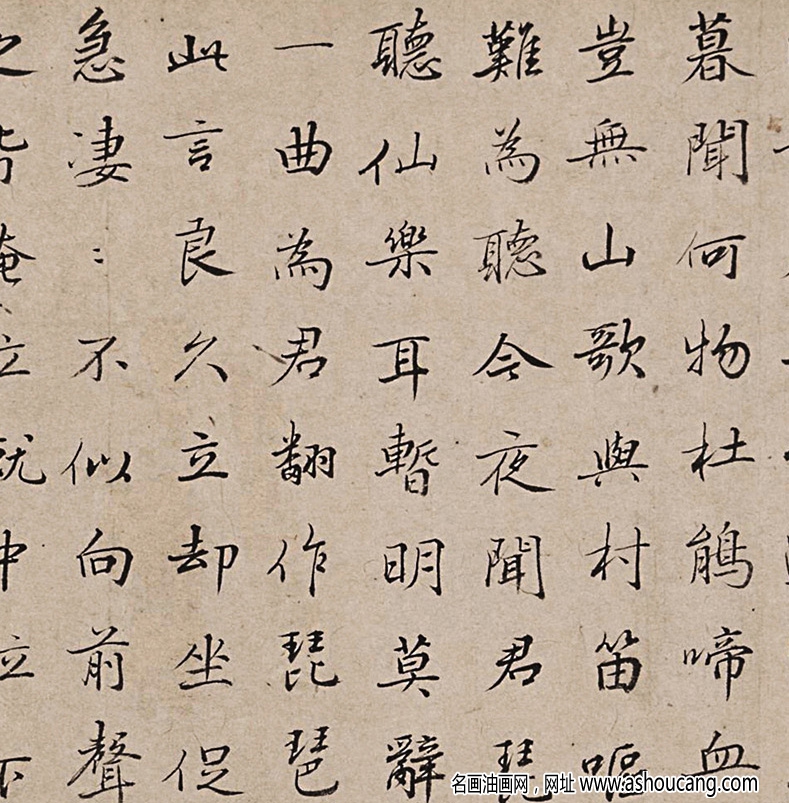 暮聞何物杜鵑啼血
豈無山歌與村笛嘔
難為聽今夜聞君琵
聽仙樂耳暫明莫辭
一曲為君翻作琵琶
此言良久立却坐促
急凄〻不似向前聲
名画油画网，网址 www.ashoucang.com